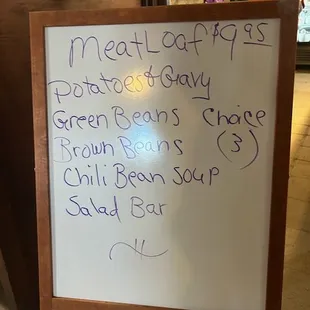 MeatLoaf $9.95
Potatoes & Gravy
Green Beans Choice
Brown Beans (3)
Chili Bean Soup
Salad Bar